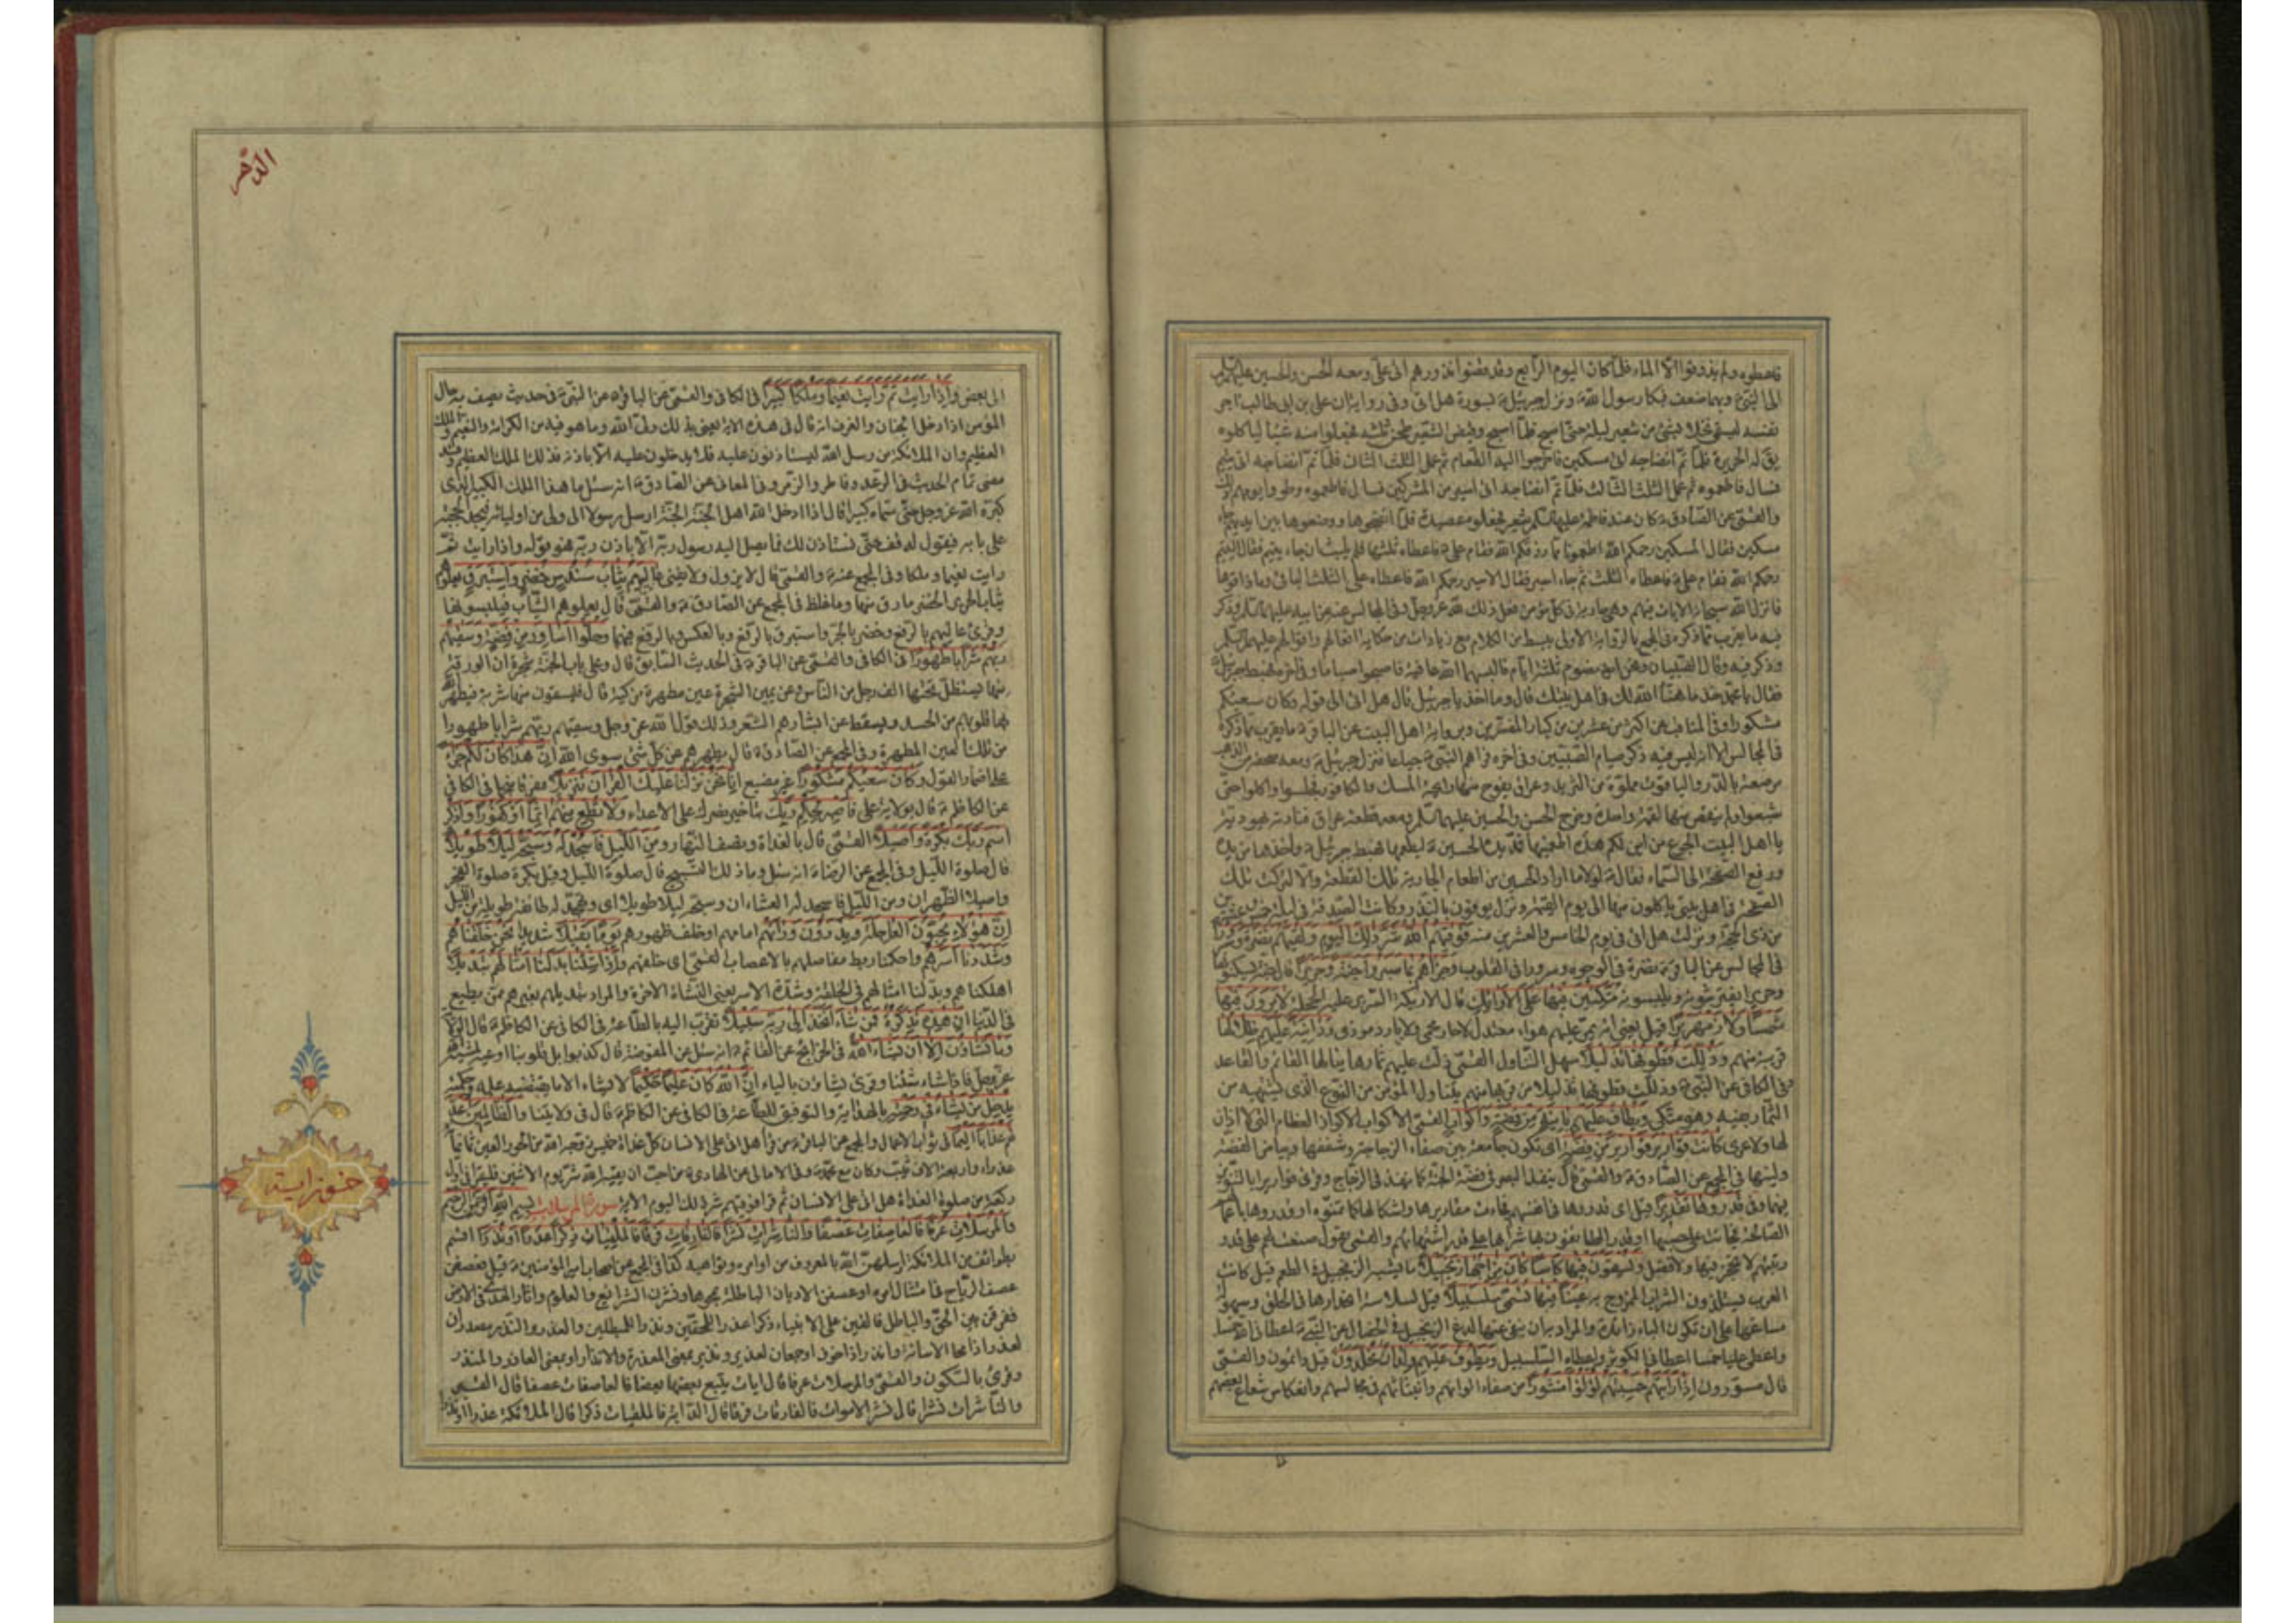 فاعطوه ولم يذوقوا الا الماء فلما كان اليوم الرابع وقد قضوا نذورهم اتى على ومعه الحسن والحسين عليهما
الى النبى وبهما ضعف فبكا رسول الله ونزل جبرئيل بسورة هل اتى وفى رواية ان على بن ابى طالب اجر
نفسه ليسقى نخلا بشئ من شعير ليلة حتى اصبح فلما اصبح وقبض الشعير طحن ثلثه فجعلوا منه شيئا لياكلوه
يق له الحريرة فلما تم انضاجه اتى مسكين فاخرجوا اليه الطعام ثم عمل الثلث الثانى فلما تم انضاجه اتى يتيم
فسال فاطعموه ثم عمل الثلث الثالث فلما تم انضاجه اتى اسير من المشركين فسال فاطعموه وطووا يومهم
والقمى عن الصادق كان عند فاطمة عليها السلم شعير فجعلوه عصيدة فلما انضجوها ووضعوها بين ايديهم جاء
مسكين فقال المسكين رحمكم الله اطعمونا مما رزقكم الله فقام على فاعطاه ثلثها فلم يلبث ان جاء يتيم فقال اليتيم
رحمكم الله فقام على فاعطاه الثلث ثم جاء اسير فقال الاسير رحمكم الله فاعطاه على الثلث الباقى وما ذاقوها
فانزل الله سبحانه الايات فيهم وهى جارية فى كل مؤمن فعل ذلك لله عز وجل وفى المجالس عنه عن ابيه عليهما السلم
فيه ما يقرب مما ذكره فى المجمع بالرواية الاولى ببسط من الكلام مع زيادات من حكاية افعالهم واقوالهم عليهم السلم
وذكر فيه وقال الصبيان ونحن ايضا نصوم ثلثة ايام فالبسهما الله عافية فاصبحوا صياما وفى اخره فهبط جبرئيل
فقال يا محمد خذ ما هنا الله لك فى اهل بيتك قال وما اخذ يا جبرئيل قال هل اتى الى قوله وكان سعيكم
مشكورا وفى المناقب عن اكثر من عشرين من كبار المفسرين وبرواية اهل البيت عن الباقر ما يقرب مما ذكره
فى المجالس الا انه ليس فيه ذكر صيام الصبيين وفى اخره فراهم النبى جياعا فنزل جبرئيل ومعه صحفة من الذهب
مرصعة بالدر والياقوت مملوة من الثريد وعراق يفوح منها رائحة المسك والكافور فجلسوا واكلوا حتى
شبعوا ولم ينقص منها لقمة واحدة وخرج الحسن والحسين عليهما السلم ومعه قطعة عراق فنادته يهودية
يا اهل البيت الجوع من اين لكم هذه اطعمنيها فمد يده الحسين ليطعمها فهبط جبرئيل واخذها من يده
ورفع الصحفة الى السماء فقال لولا ما اراد الحسين من اطعام الجارية تلك القطعة والا لتركت تلك
الصحفة فى اهل بيتى ياكلون منها الى يوم القيمة ونزل يوفون بالنذر وكانت الصدقة فى ليلة خمس وعشرين
من ذى الحجة ونزلت هل اتى فى يوم الخامس والعشرين منه فوقيهم الله شر ذلك اليوم ولقيهم نضرة وسرورا
فى المجالس عن الباقر نضرة فى الوجوه وسرورا فى القلوب وجزاهم بما صبروا جنة وحريرا قال جنة يسكنونها
وحريرا يفترشونه ويلبسونه متكئين فيها على الارائك قال الاريكة السرير عليه الحجلة لا يرون فيها
شمسا ولا زمهريرا قيل يعنى انه يمر عليهم هواء معتدل لا حار محمى ولا بارد موذى ودانية عليهم ظلالها
قريبة منهم وذللت قطوفها تذليلا سهل التناول القمى دليت عليهم ثمارها ينالها القائم والقاعد
وفى الكافى عن النبى وذللت قطوفها تذليلا من قربها منهم يتناول المؤمن من النوع الذى يشتهيه من
الثمار بفيه وهو متكى ويطاف عليهم بانية من فضة واكواب القمى الاكواب الاكواز العظام التى لا اذان
لها ولا عرى كانت قوارير قوارير من فضة اى تكون جامعة بين صفاء الزجاجة وشفيفها وبياض الفضة
ولينها فى المجمع عن الصادق والقمى قال ينفذ البصر فى فضة الجنة كما ينفذ فى الزجاج وقرئ قوارير بالتنوين
فيهما قدروها تقديرا قيل اى قدروها فى انفسهم فجاءت مقاديرها واشكالها كما تمنوه او قدروها باعمالهم
الصالحة فجاءت على حسبها او قدر الطائفون بها شرابها على قدر اشتهائهم والقمى يقول صنعت لهم على قدر
رتبتهم لا تحجز فيها ولا فضل ويسقون فيها كاسا كان مزاجها زنجبيلا ما يشبه الزنجبيل فى الطعم قيل كانت
العرب يستلذون الشراب الممزوج به عينا فيها تسمى سلسبيلا قيل لسلاسة انحدارها فى الحلق وسهولة
مساغها على ان تكون الباء زائدة والمراد به ان ينفى عنها لذع الزنجبيل فى الخصال عن النبى اعطانى الله خمسا
واعطى عليا خمسا اعطانى الكوثر واعطاه السلسبيل ويطوف عليهم ولدان مخلدون قيل دائمون والقمى
قال مسورون اذا رايتهم حسبتهم لؤلؤا منثورا من صفاء الوانهم وانبثاثهم فى مجالسهم وانعكاس شعاع بعضهم
الدهر
الى بعض واذا رايت ثم رايت نعيما وملكا كبيرا فى الكافى والقمى عن الباقر عن النبى فى حديث يصف به حال
المؤمن اذا دخل الجنان والغرف انه قال فى هذه الاية يعنى بذلك ولى الله وما هو فيه من الكرامة والنعيم والملك
العظيم وان الملائكة من رسل الله ليستاذنون عليه فلا يدخلون عليه الا باذنه فذلك الملك العظيم وقد
مضى تمام الحديث فى الرعد وفاطر والزمر وفى المعانى عن الصادق انه سئل ما هذا الملك الكبير الذى
كبره الله عز وجل حتى سماه كبيرا قال اذا ادخل الله اهل الجنة الجنة ارسل رسولا الى ولى من اوليائه فيجد الحجبة
على بابه فيقول له قف حتى نستاذن لك فما يصل اليه رسول ربه الا باذن ربه فهو قوله واذا رايت ثم
رايت نعيما وملكا وفى المجمع عنه والقمى قال لا يزول ولا يفنى عاليهم ثياب سندس خضر واستبرق يعلوهم
ثياب الحرير الخضر ما رق منها وما غلظ فى المجمع عن الصادق والقمى قال يعلوهم الثياب فيلبسونها
وقرئ عاليهم بالرفع وخضر بالجر واستبرق بالرفع وبالعكس وبالرفع فيهما وحلوا اساور من فضة وسقيهم
ربهم شرابا طهورا فى الكافى والقمى عن الباقر فى الحديث السابق قال وعلى باب الجنة شجرة ان الورقة
منها ليستظل تحتها الف رجل من الناس وعن يمين الشجرة عين مطهرة مزكية قال فيسقون منها شربة فيطهر الله
بها قلوبهم من الحسد ويسقط عن ابشارهم الشعر وذلك قول الله عز وجل وسقيهم ربهم شرابا طهورا
من تلك العين المطهرة وفى المجمع عن الصادق قال يطهرهم عن كل شئ سوى الله ان هذا كان لكم جزاء
على اضمار القول وكان سعيكم مشكورا غير مضيع انا نحن نزلنا عليك القران تنزيلا مفرقا منجما فى الكافى
عن الكاظم قال بولاية على فاصبر لحكم ربك بتاخير نصرك على الاعداء ولا تطع منهم اثما او كفورا واذكر
اسم ربك بكرة واصيلا القمى قال بالغداة ونصف النهار ومن الليل فاسجد له وسبحه ليلا طويلا
قال صلوة الليل وفى المجمع عن الرضا انه سئل وما ذلك التسبيح قال صلوة الليل وقيل بكرة صلوة الفجر
واصيلا الظهران ومن الليل فاسجد له العشاءان وسبحه ليلا طويلا اى وتهجد له طائفة طويلة من الليل
ان هؤلاء يحبون العاجلة ويذرون وراءهم امامهم او خلف ظهورهم يوما ثقيلا شديدا نحن خلقناهم
وشددنا اسرهم واحكمنا ربط مفاصلهم بالاعصاب القمى اى خلقهم واذا شئنا بدلنا امثالهم تبديلا
اهلكناهم وبدلنا امثالهم فى الخلقة وشدة الاسر يعنى النشاة الاخرة والمراد تبديلهم بغيرهم ممن يطيع
فى الدنيا ان هذه تذكرة فمن شاء اتخذ الى ربه سبيلا تقرب اليه بالطاعة فى الكافى عن الكاظم قال الولاية
وما تشاؤن الا ان يشاء الله فى الخرايج عن القائم انه سئل عن المفوضة قال كذبوا بل قلوبنا اوعية لمشية الله
عز وجل فاذا شاء شئنا وقرئ يشاؤن بالياء ان الله كان عليما حكيما لا يشاء الا ما يقتضيه علمه وحكمته
يدخل من يشاء فى رحمته بالهداية والتوفيق للطاعة فى الكافى عن الكاظم قال فى ولايتنا والظالمين اعد
لهم عذابا اليما فى ثواب الاعمال والمجمع عن الباقر من قرا هل اتى على الانسان كل غداة خميس زوجه الله من الحور العين ثمانماة
عذراء واربعة الاف ثيب وكان مع محمد وفى الامالى عن الهادى من احب ان يقيه الله شر يوم الاثنين فليقرا فى اول
ركعة من صلوة الغداة هل اتى على الانسان ثم قرا فوقيهم الله شر ذلك اليوم الاية سورة المرسلات بسم الله الرحمن الرحيم
والمرسلات عرفا فالعاصفات عصفا والناشرات نشرا فالفارقات فرقا فالملقيات ذكرا عذرا او نذرا اقسم
بطوائف من الملائكة ارسلهن الله بالمعروف من اوامره ونواهيه كذا فى المجمع عن اصحاب امير المؤمنين قيل فعصفن
عصف الرياح فى امتثال امره او عصفن الاديان الباطلة بمحوها ونشرن الشرائع والعلوم واثار الهدى فى الارض
ففرقن بين الحق والباطل فالقين على الانبياء ذكرا عذرا للمحقين ونذرا للمبطلين والعذر والنذر مصدران
لعذر اذا محا الاسائة وانذر اذا خوف او جمعان لعذير ونذير بمعنى المعذرة والانذار او بمعنى العاذر والمنذر
وقرئ بالسكون والقمى والمرسلات عرفا قال ايات يتبع بعضها بعضا فالعاصفات عصفا قال القبر
والناشرات نشرا قال نشر الاموات فالفارقات فرقا قال الدابة فالملقيات ذكرا قال الملائكة عذرا او نذرا